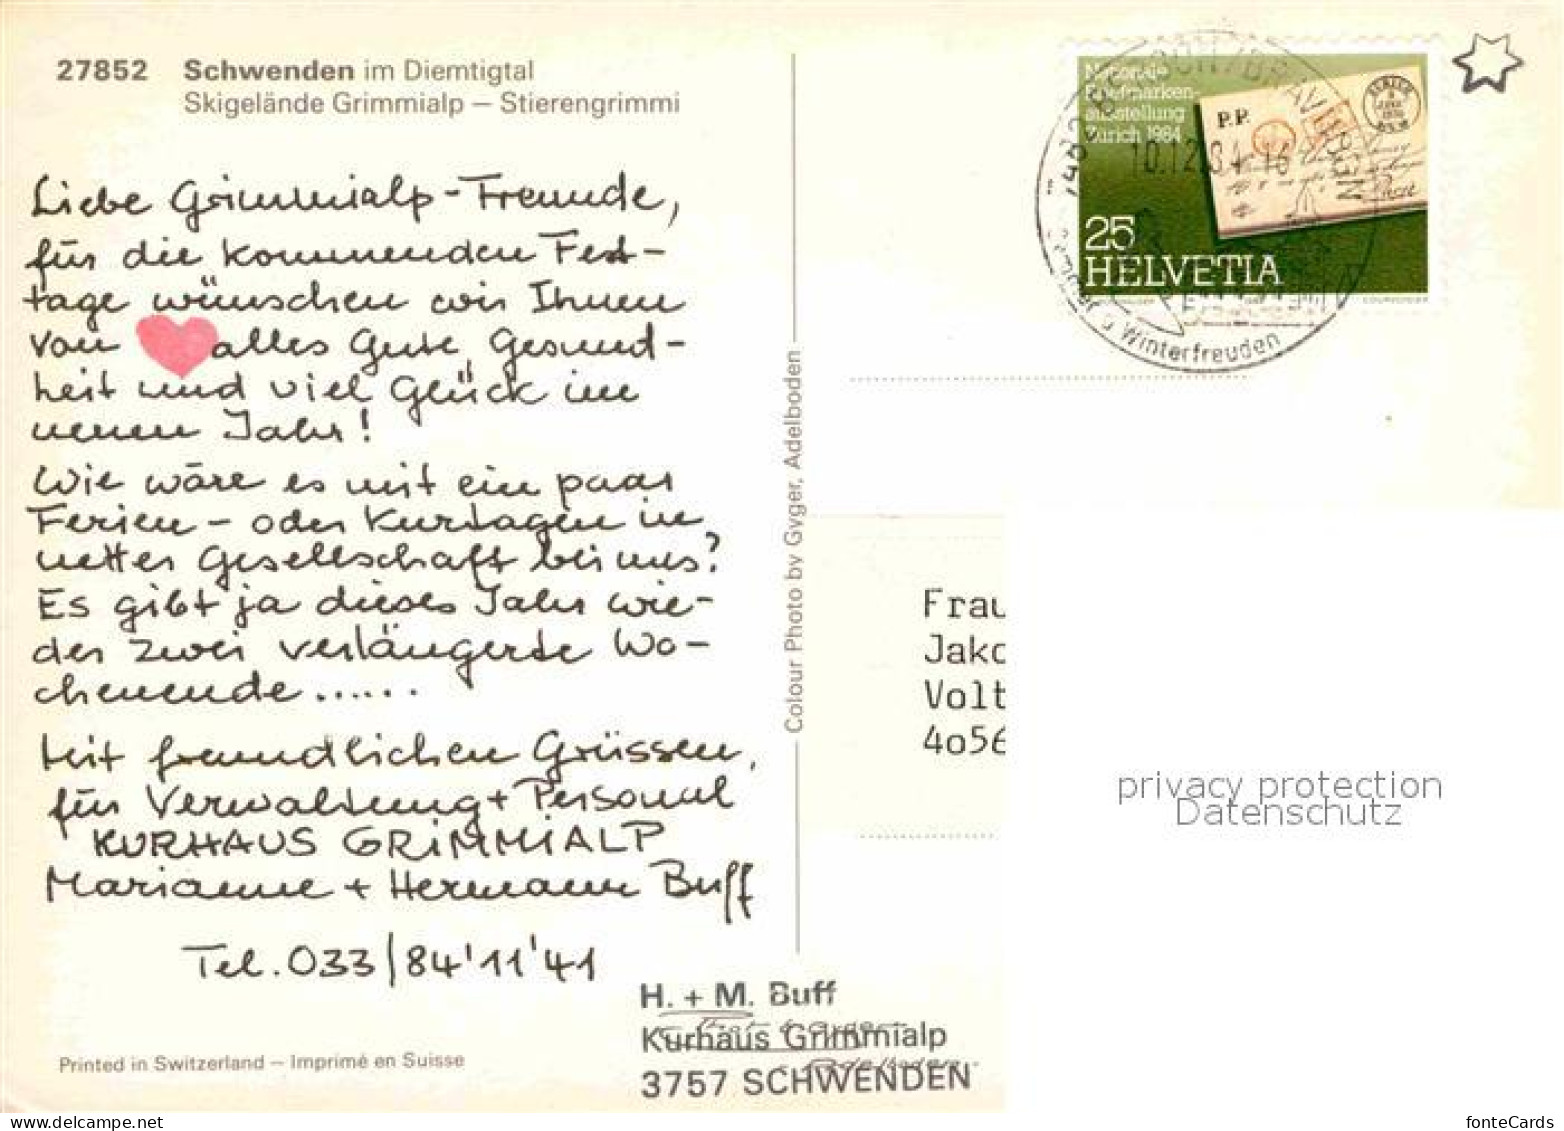 27852 Schwenden im Diemtigtal
Skigelände Grimmialp – Stierengrimmi
Liebe Grimmialp-Freunde,
für die kommenden Fest-
tage wünschen wir Ihnen
von alles Gute, Gesund-
heit und viel Glück im
neuen Jahr!
Wie wäre es mit ein paar
Ferien- oder Kurtagen in
netter Gesellschaft bei uns?
Es gibt ja dieses Jahr wie-
der zwei verlängerte Wo-
chenende......
Mit freundlichen Grüssen,
für Verwaltung + Personal
KURHAUS GRIMMIALP
Marianne + Hermann Buff
Tel. 033/84'11'41
Printed in Switzerland – Imprimé en Suisse
Colour Photo by Gyger, Adelboden
National-
Briefmarken-
ausstellung
Zürich 1984
P.P.
25
HELVETIA
COURVOISIER
10.12.84-16
Winterfreuden
Frau
Jako
Volt
4056
H. + M. Buff
Kurhaus Grimmialp
3757 SCHWENDEN
privacy protection
Datenschutz
fonteCards